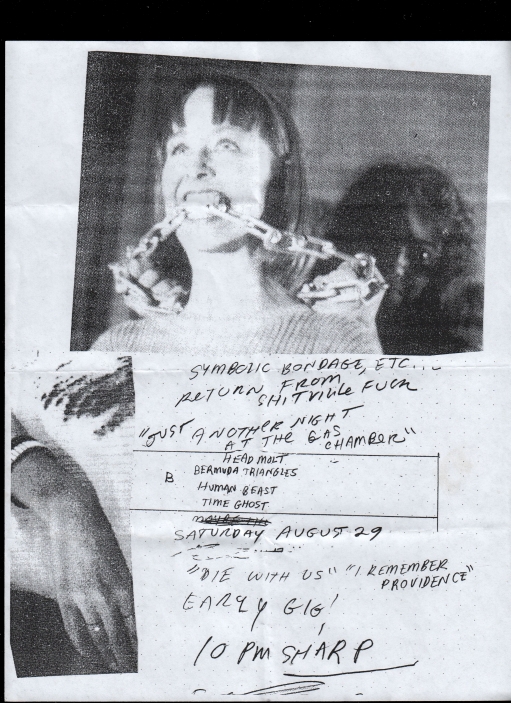 SYMBOLIC BONDAGE, ETC...
RETURN FROM
SHITVILLE FUCK
"JUST ANOTHER NIGHT
AT THE GAS
CHAMBER"
HEAD MOLT
B BERMUDA TRIANGLES
HUMAN BEAST
TIME GHOST
SATURDAY AUGUST 29
"DIE WITH US" "I REMEMBER
PROVIDENCE"
EARLY GIG!
10 PM SHARP